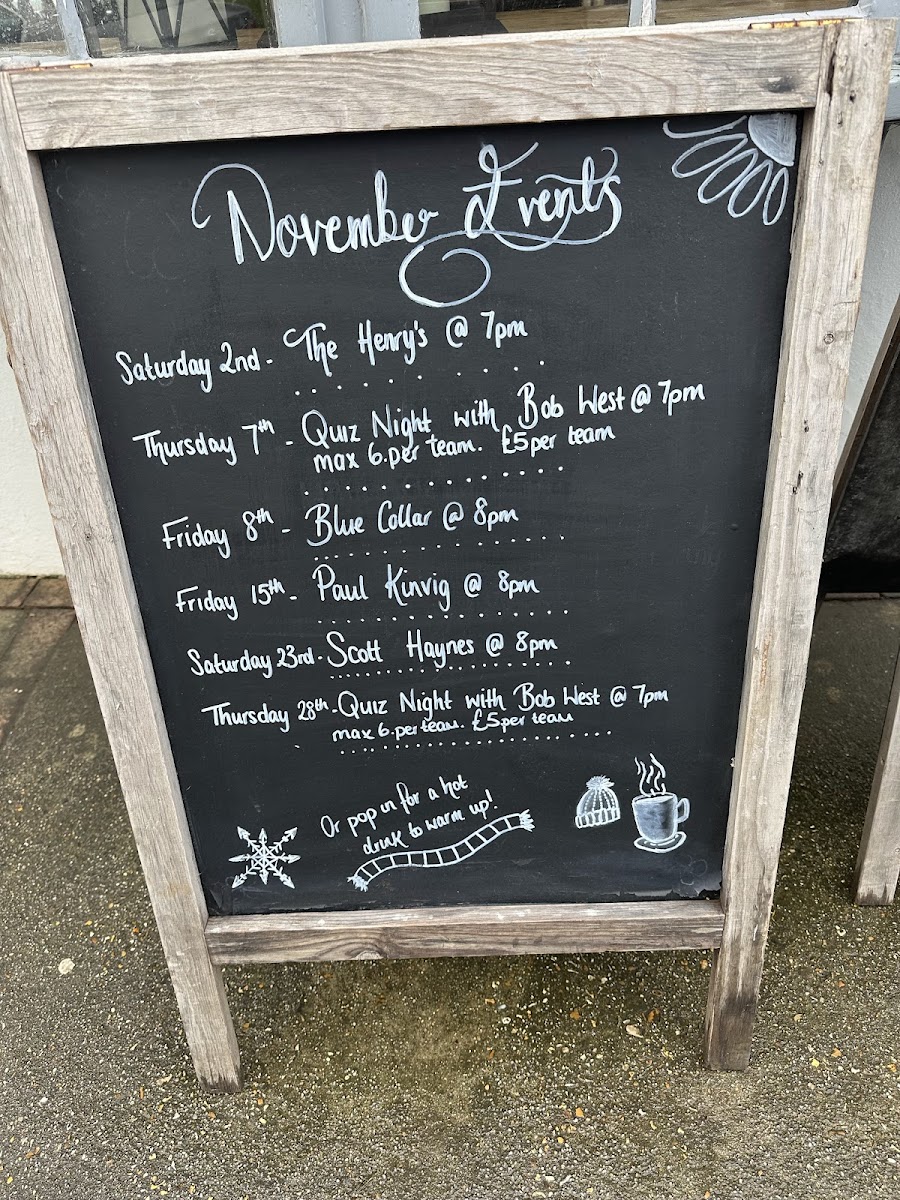 November Events
Saturday 2nd - The Henry's @ 7pm
Thursday 7th - Quiz Night with Bob West @ 7pm
max 6.per team. £5 per team
Friday 8th - Blue Collar @ 8pm
Friday 15th - Paul Kinvig @ 8pm
Saturday 23rd - Scott Haynes @ 8pm
Thursday 28th - Quiz Night with Bob West @ 7pm
max 6.per team. £5 per team
Or pop in for a hot
drink to warm up!